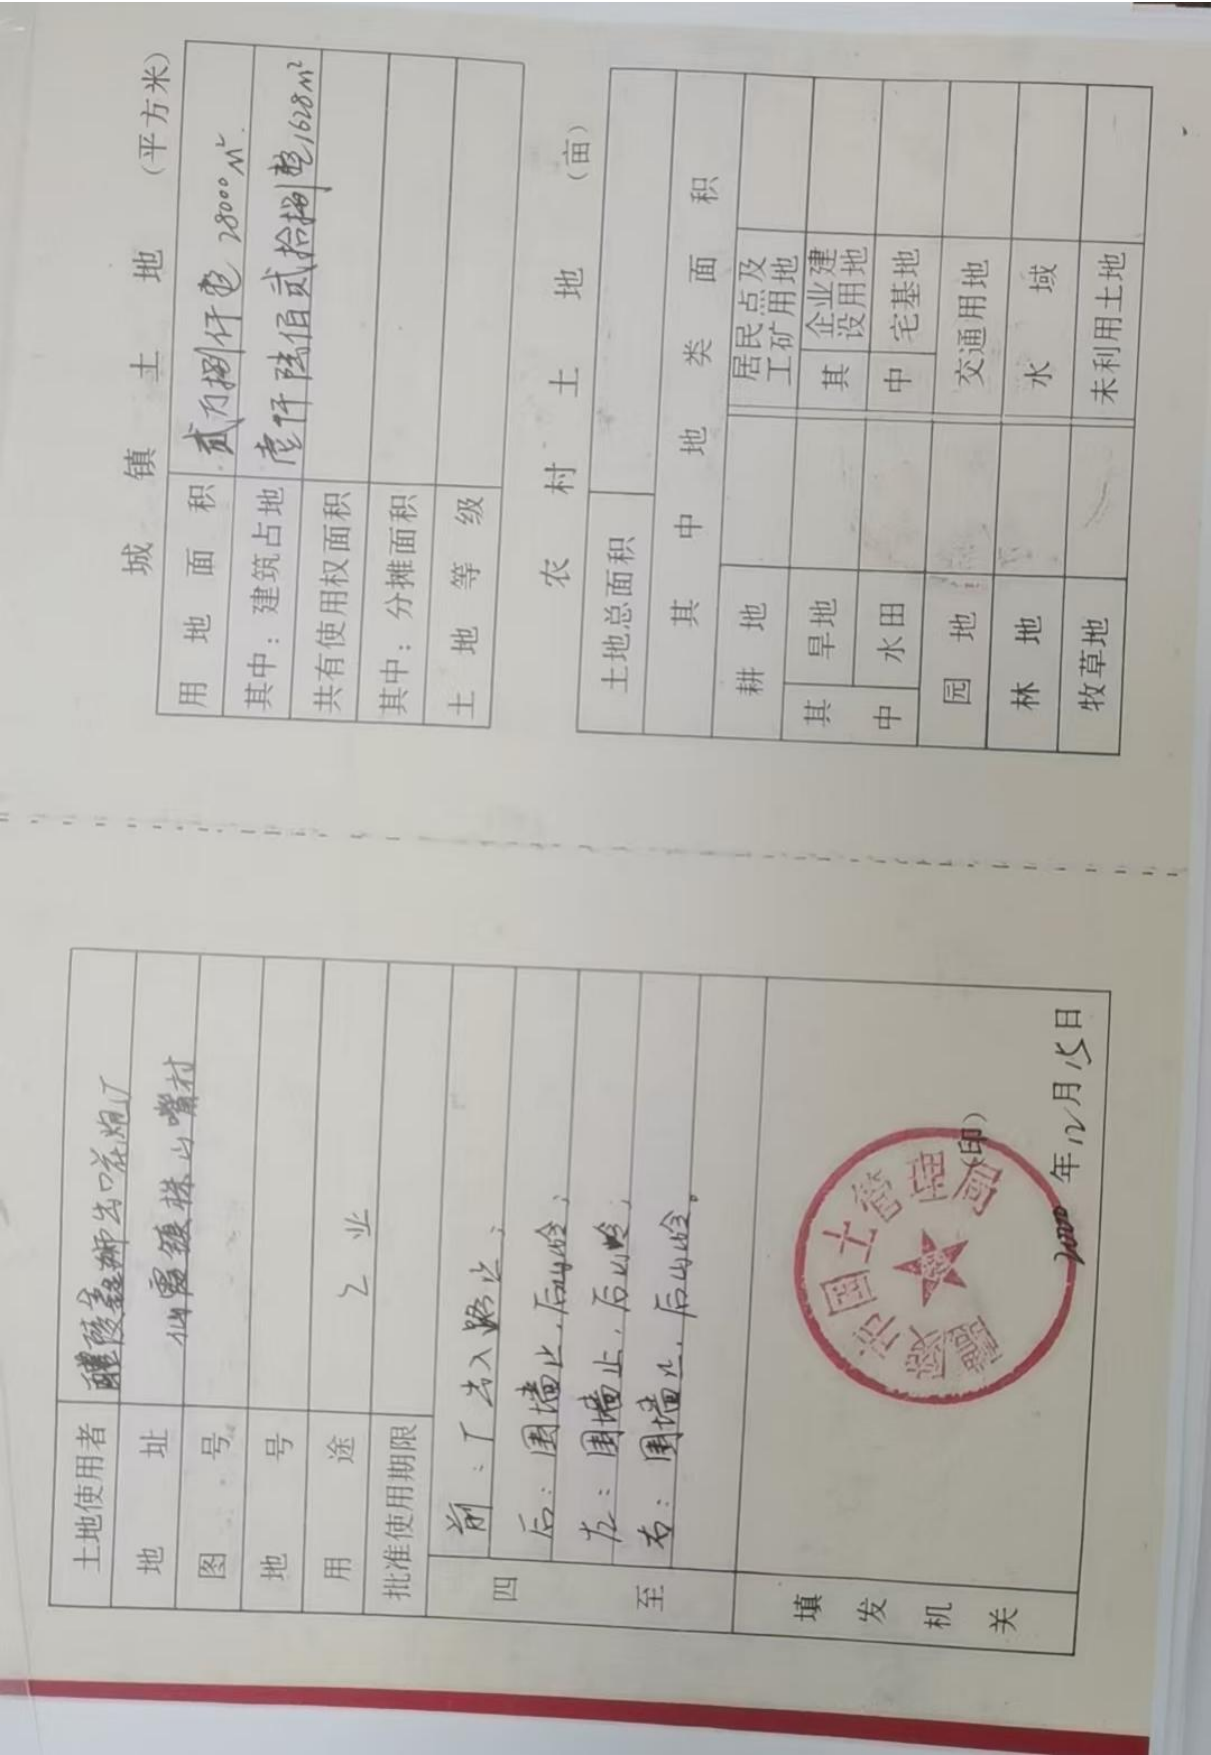 土地使用者 醴陵鑫狮出口花炮厂
地址 仙霞镇株山嘴村
图号
地号
用途 工业
批准使用期限
四至
前：厂出入路止；
后：围墙止，后山岭；
左：围墙止，后山岭；
右：围墙止，后山岭。
填发机关
醴陵市国土管理局
（印）
2000年12月15日
城镇土地（平方米）
用地面积 贰万捌仟整 28000m²
其中：建筑占地 壹仟陆佰贰拾捌整1628m²
共有使用权面积
其中：分摊面积
土地等级
农村土地（亩）
土地总面积
其中地类面积
耕地 居民点及工矿用地
其中 旱地 其中 企业建设用地
水田 宅基地
园地 交通用地
林地 水域
牧草地 未利用土地